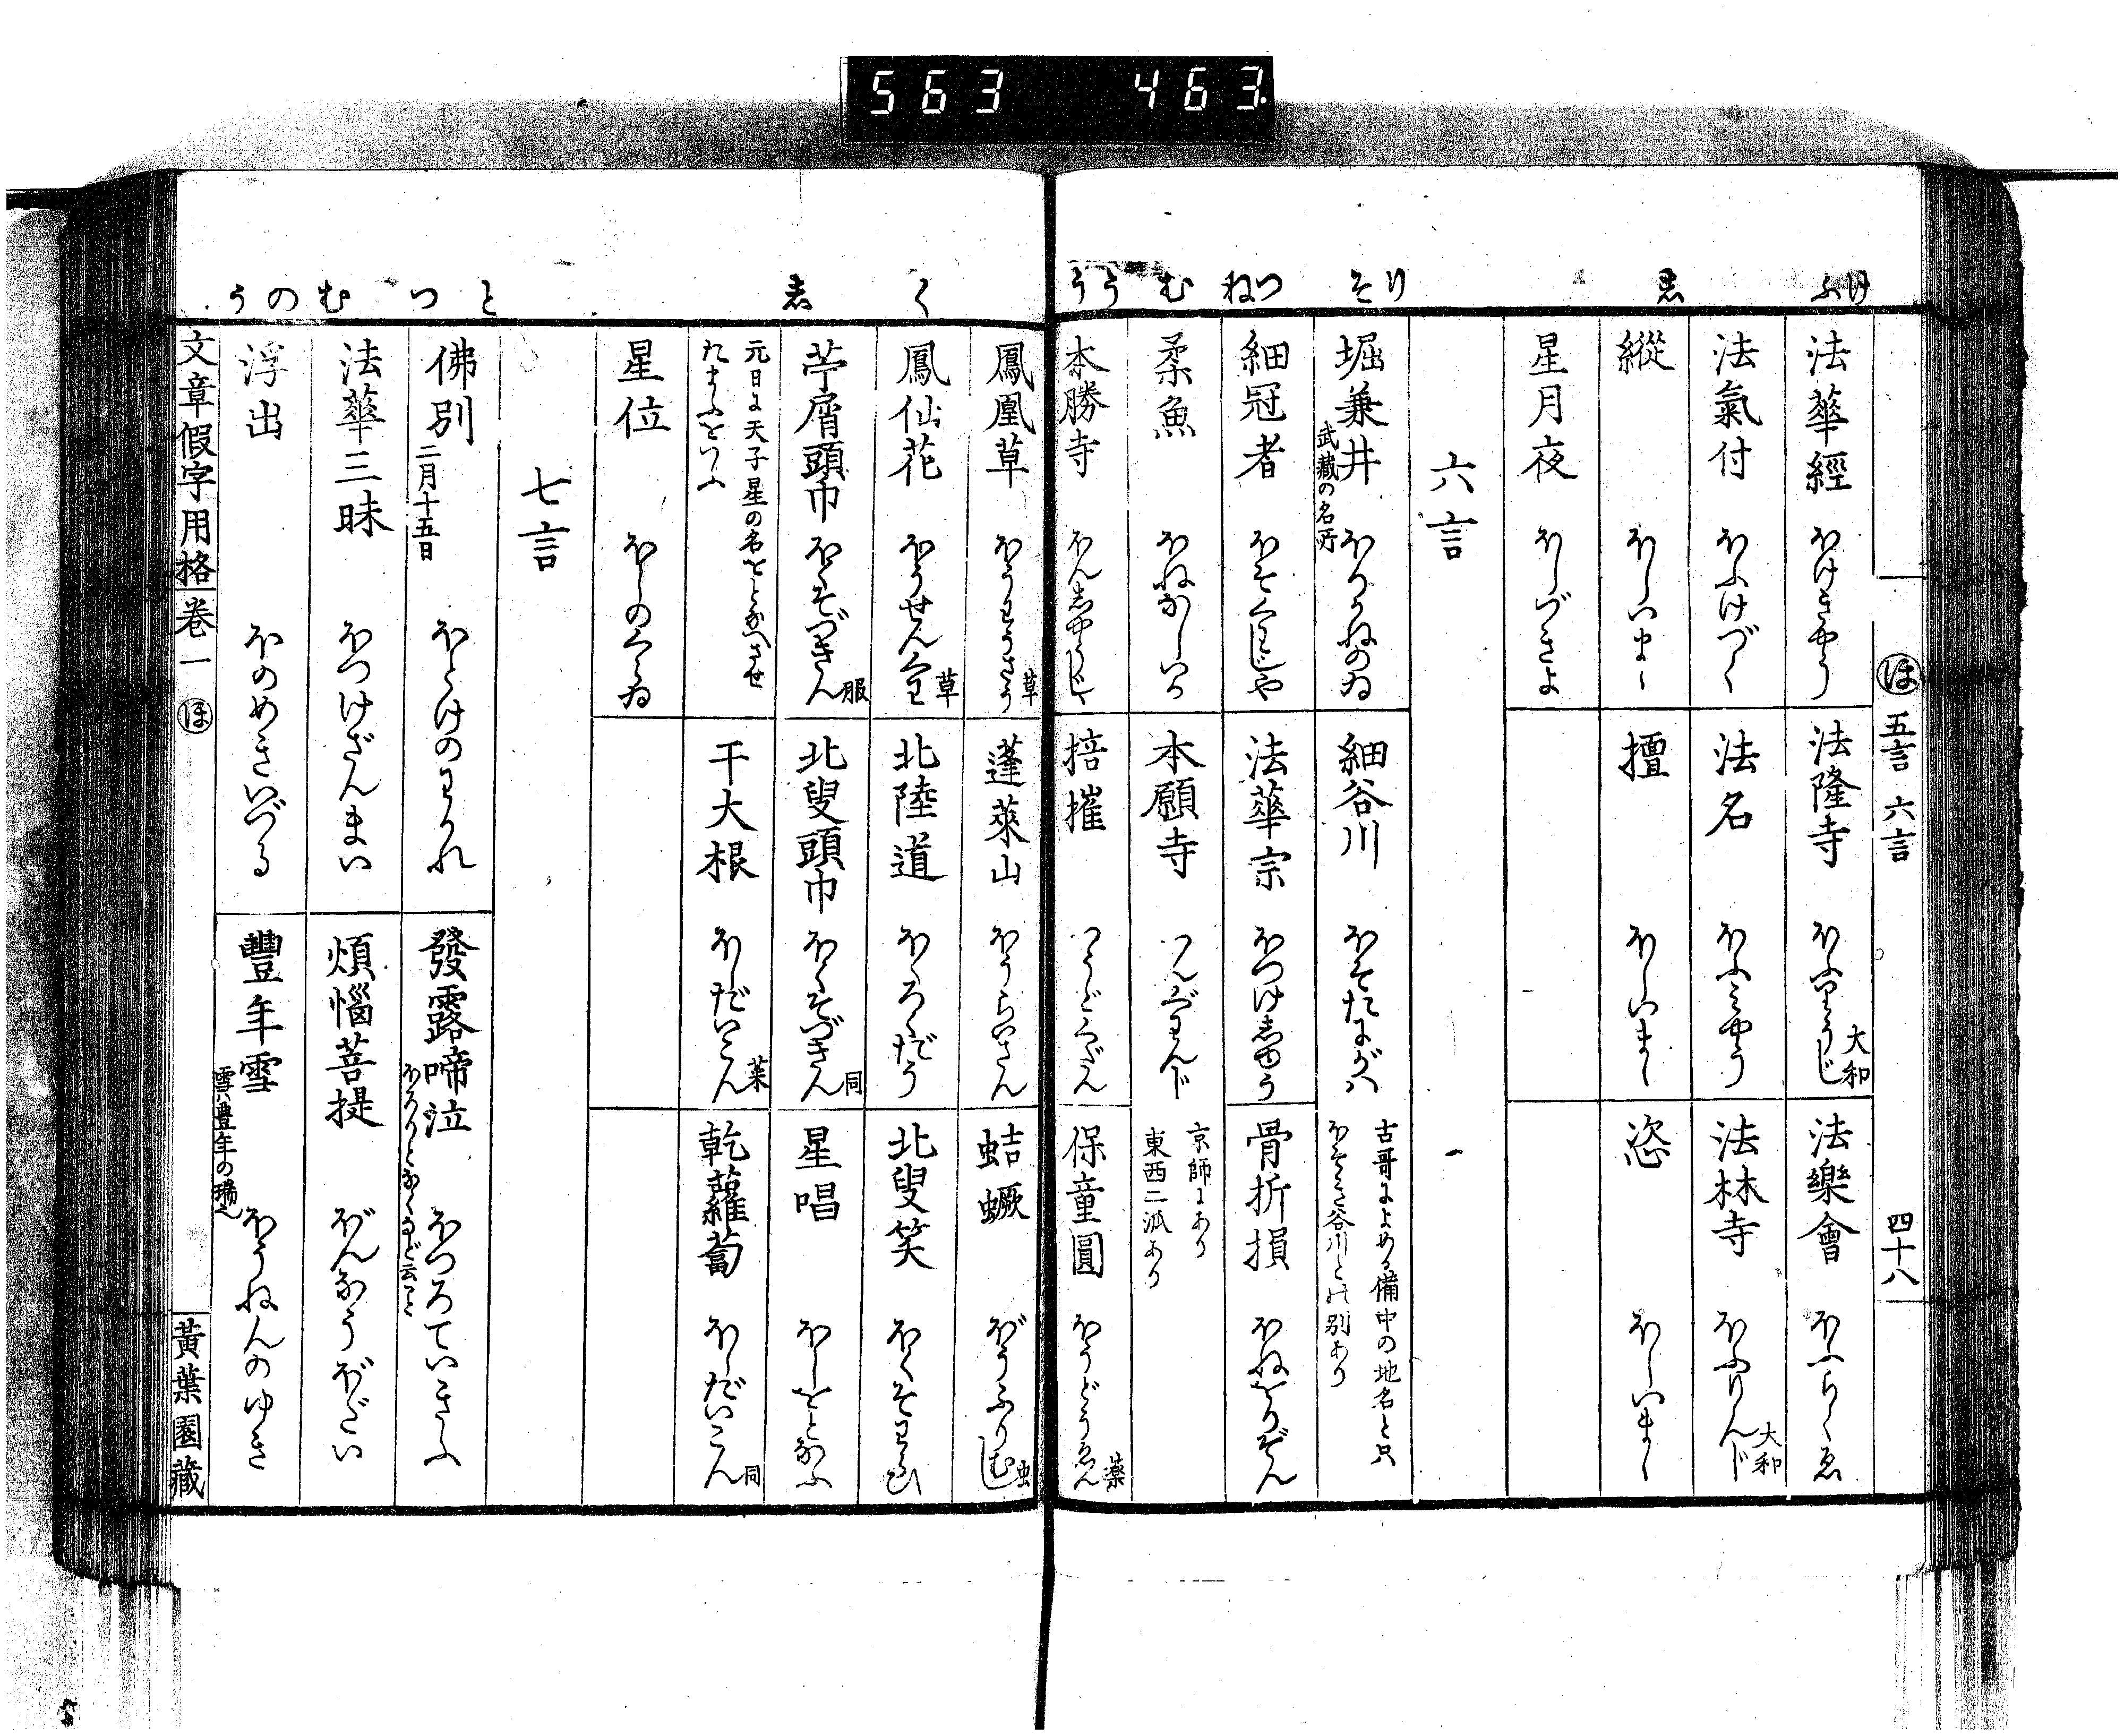 563 463
ふけ
ゑ
そり
ねつ
む
うう
ほ 五言 六言 四十八
法華經 ほけきやう
法隆寺 ほふりうじ 大和
法樂會 ほふらくゑ
法氣付 ほふけづく
法名 ほふみやう
法林寺 ほふりんじ 大和
縱 ほしいまゝ
擅 ほしいまゝ
恣 ほしいまゝ
星月夜 ほしづきよ
六言
堀兼井 武藏の名所 ほりかねのゐ
細谷川 ほそたにがは
古哥によめる備中の地名と只
ほそき谷川との別あり
細冠者 ほそくわじや
法華宗 ほつけしゆう
骨折損 ほねをりぞん
柔魚 ほねなしいか
本願寺 ほんぐわんじ
京師にあり
東西二派あり
本勝寺 ほんしやうじ
掊摧
保童圓 ほうどうゑん 藥
く
し
と
つ
む
の
う
鳳凰草 ほうわうさう 草
蓬萊山 ほうらいさん
蛣蟩 ぼうふりむし 虫
鳳仙花 ほうせんくわ 草
北陸道 ほくろくだう
北叟笑 ほくそわらひ
苧屑頭巾 ほくそづきん 服
北叟頭巾 ほくそづきん 同
星唱 ほしをとなふ
元日に天子星の名をとなへさせ
たまふをいふ
干大根 ほしだいこん 菜
乾蘿蔔 ほしだいこん 同
星位 ほしのくらゐ
七言
佛別 二月十五日 ほとけのわかれ
發露啼泣 ほろりとなくなど云こと ほつろていきふ
法華三昧 ほつけざんまい
煩惱菩提 ぼんなうぼだい
浮出 ほのめきいづる
豐年雪 雪ハ豊年の瑞也 ほうねんのゆき
文章假字用格 卷一 ほ 黃葉園藏